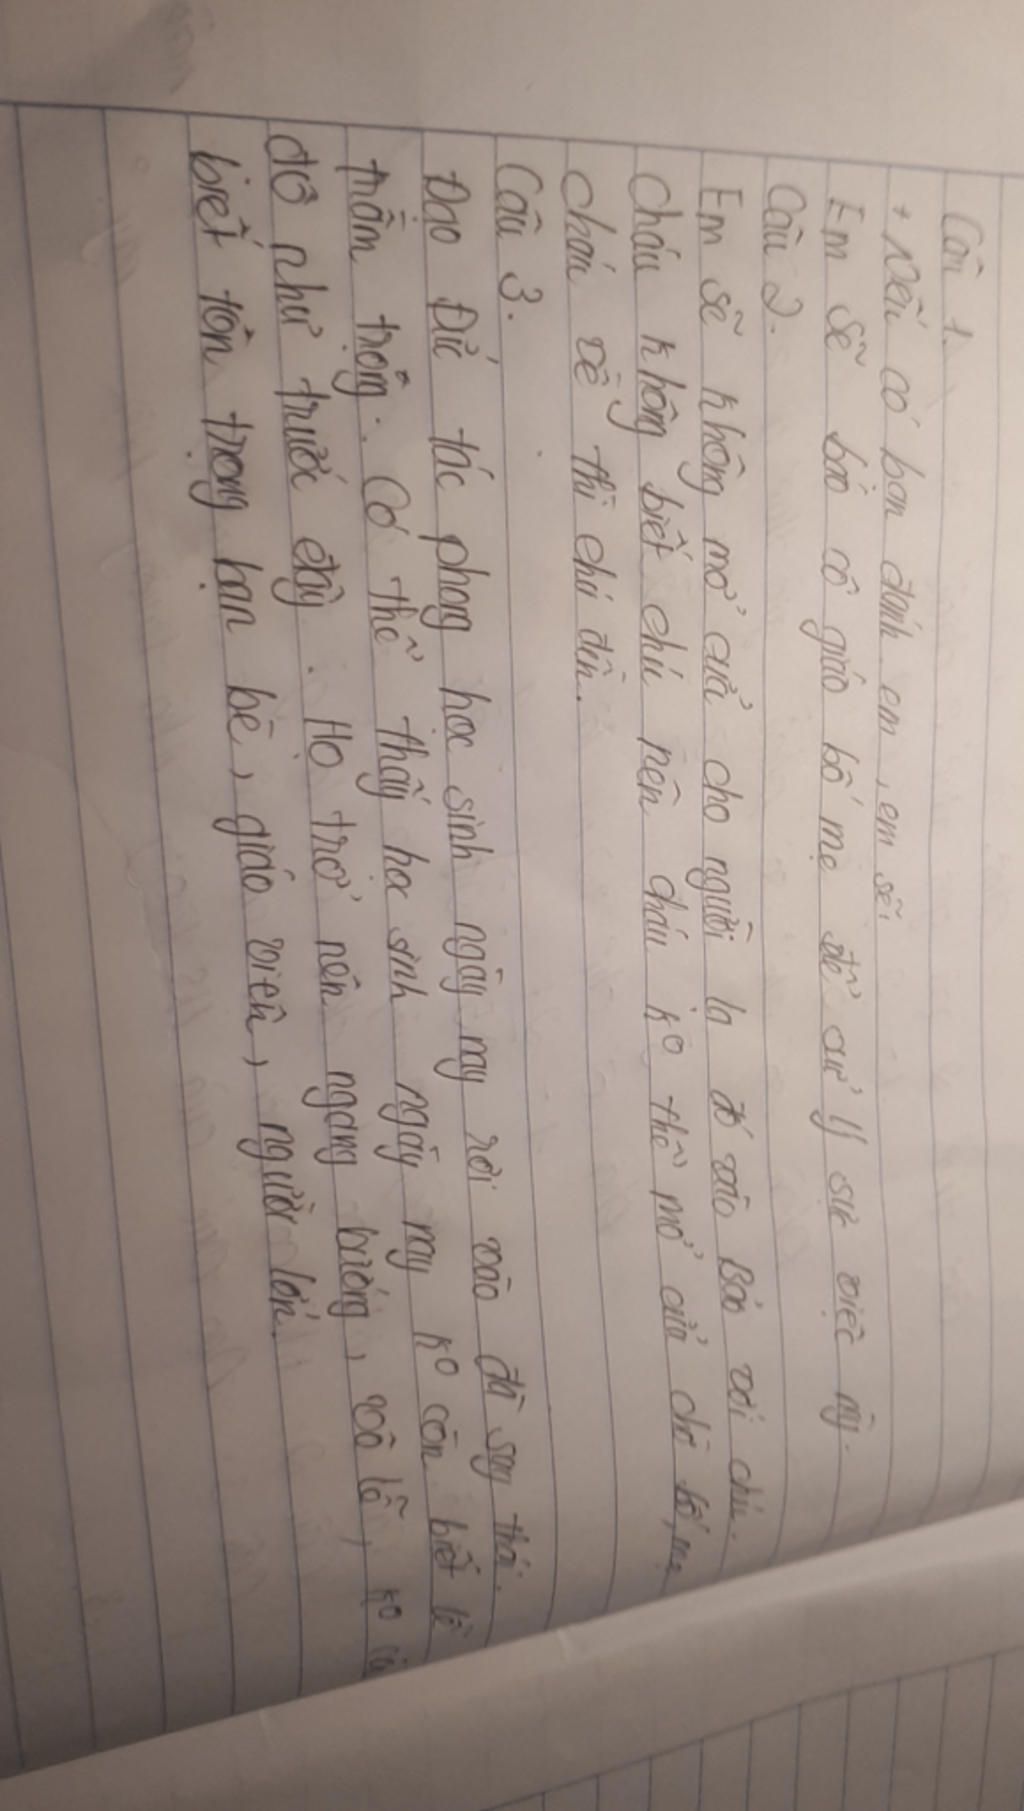 Câu 1.
+ Nếu có bạn đánh em, em sẽ:
Em sẽ báo cô giáo bố mẹ để cử lý sự việc ấy.
Câu 2.
Em sẽ không mở cửa cho người lạ đó vào Báo với chú.
Cháu không biết chú nên cháu ko thể mở cửa chờ bố, mẹ
cháu về thì chú đến.
Câu 3.
Đạo Đức tác phong học sinh ngày nay rơi vào đà suy thái.
trầm trọng. Có thể thấy học sinh ngày nay ko còn biết lễ
độ như trước đây. Họ trở nên ngang bướng, vô lễ, ko
biết tôn trọng bạn bè, giáo viên, người lớn.